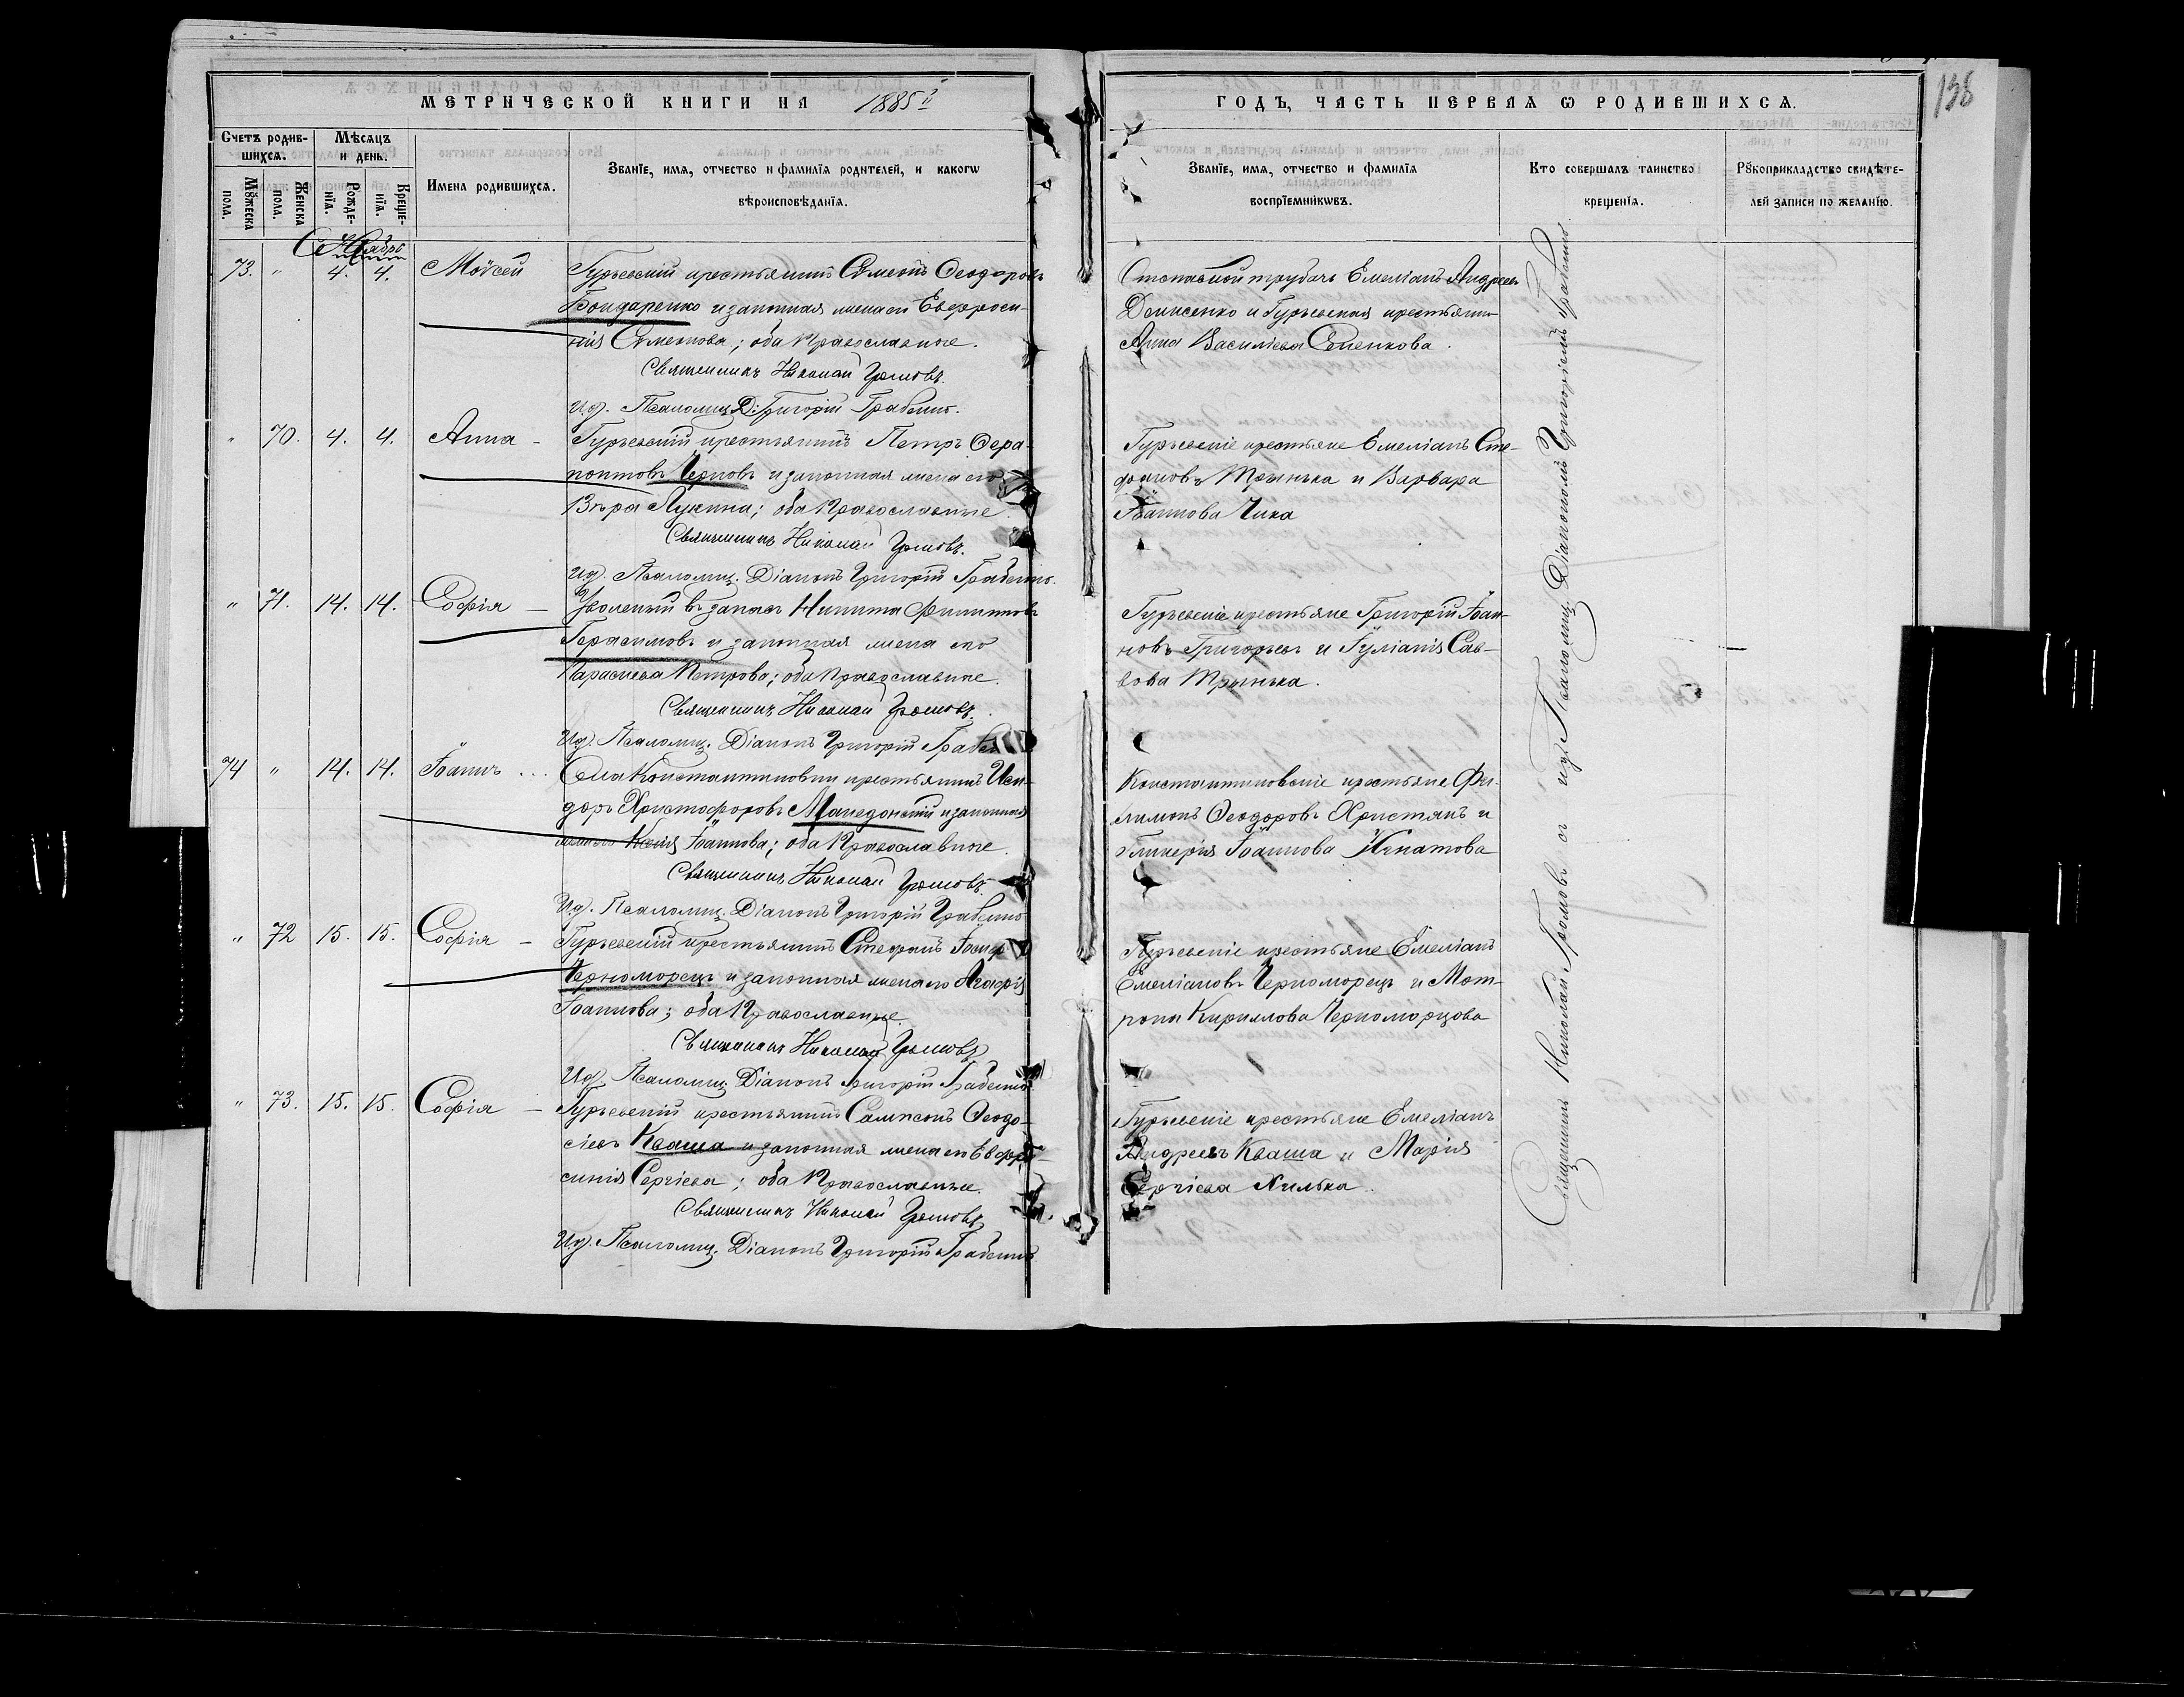 МЕТРИЧЕСКОЙ КНИГИ НА 1885й
ГОДЪ, ЧАСТЬ ПЕРВАЯ Ѡ РОДИВШИХСЯ.
138
Счетъ родив-
шихся.
Мѣсяцъ
и день.
Мꙋжеска
пола.
Женска
пола.
Рожде-
нїя.
Креще-
нїя.
Имена родившихся.
Званїе, имя, отчество и фамилїя родителей, и какогѡ
вѣроисповѣданїя.
Званїе, имя, отчество и фамилїя
воспрїемникѡвъ.
Кто совершалъ таинство
крещенїя.
Рꙋкоприкладство свидѣте-
лей записи по желанїю.
73. " 4. 4. Моѵсей
Гурьевскій крестьянинъ Сѵмеонъ Ѳеодоровъ
Бондаренко и законная жена его Евфроси-
нія Сѵмеонова; оба Православные.
Священникъ Николай Громовъ.
Ид. Псаломщ. Д: Григорій
Отставной трубачъ Емеліанъ Андреевъ
Денисенко и Гурьевская крестьянка
Анна Василіева Семенкова.
" 70. 4. 4. Анна -
Гурьевскій крестьянинъ Петръ Ѳера-
понтовъ Черновъ и законная жена его
Вѣра Лукина; оба Православные
Священникъ Николай Громовъ.
Ид. Псаломщ. Діаконъ Григорій
Гурьевскіе крестьяне Емеліанъ Сте-
фановъ Трынька и Варвара
Іоаннова Чика
" 71. 14. 14. Софія -
Уволенный въ запасъ Никита Филипповъ
Герасимовъ и законная жена его
Параскева Петрова; оба Православные.
Священникъ Николай Громовъ.
Ид. Псаломщ. Діаконъ Григорій
Гурьевскіе крестьяне Григорій Іоан-
новъ Григорьевъ и Іуліанія Сав-
вова Трынька.
74 " 14. 14. Іоаннъ ...
Села Константиновки крестьянинъ Иси-
доръ Христофоровъ Македонскій и законная
жена его Ксенія Іоаннова; оба Православные.
Священникъ Николай Громовъ.
Ид. Псаломщ. Діаконъ Григорій
Константиновскіе крестьяне Фи-
лимонъ Ѳеодоровъ Христянъ и
Гликерія Іоаннова Игнатова
" 72 15. 15. Софія -
Гурьевскій крестьянинъ Стефанъ
Черноморецъ и законная жена его Агафія
Іоаннова; оба Православные.
Священникъ Николай Громовъ
Ид. Псаломщ. Діаконъ Григорій
Гурьевскіе крестьяне Емеліанъ
Емеліановъ Черноморецъ и Мат-
рона Кириллова Черноморцова
" 73. 15. 15. Софія -
Гурьевскій крестьянинъ Сампсонъ Ѳеодо-
сіевъ Кваша и законная жена его Евфро-
синія Сергіева; оба Православные.
Священникъ Николай Громовъ
Ид. Псаломщ. Діаконъ Григорій
Гурьевскіе крестьяне Емеліанъ
Андреевъ Кваша и Марія
Сергіева
Священникъ Николай Громовъ съ ид. Псаломщ. Діакономъ Григоріемъ